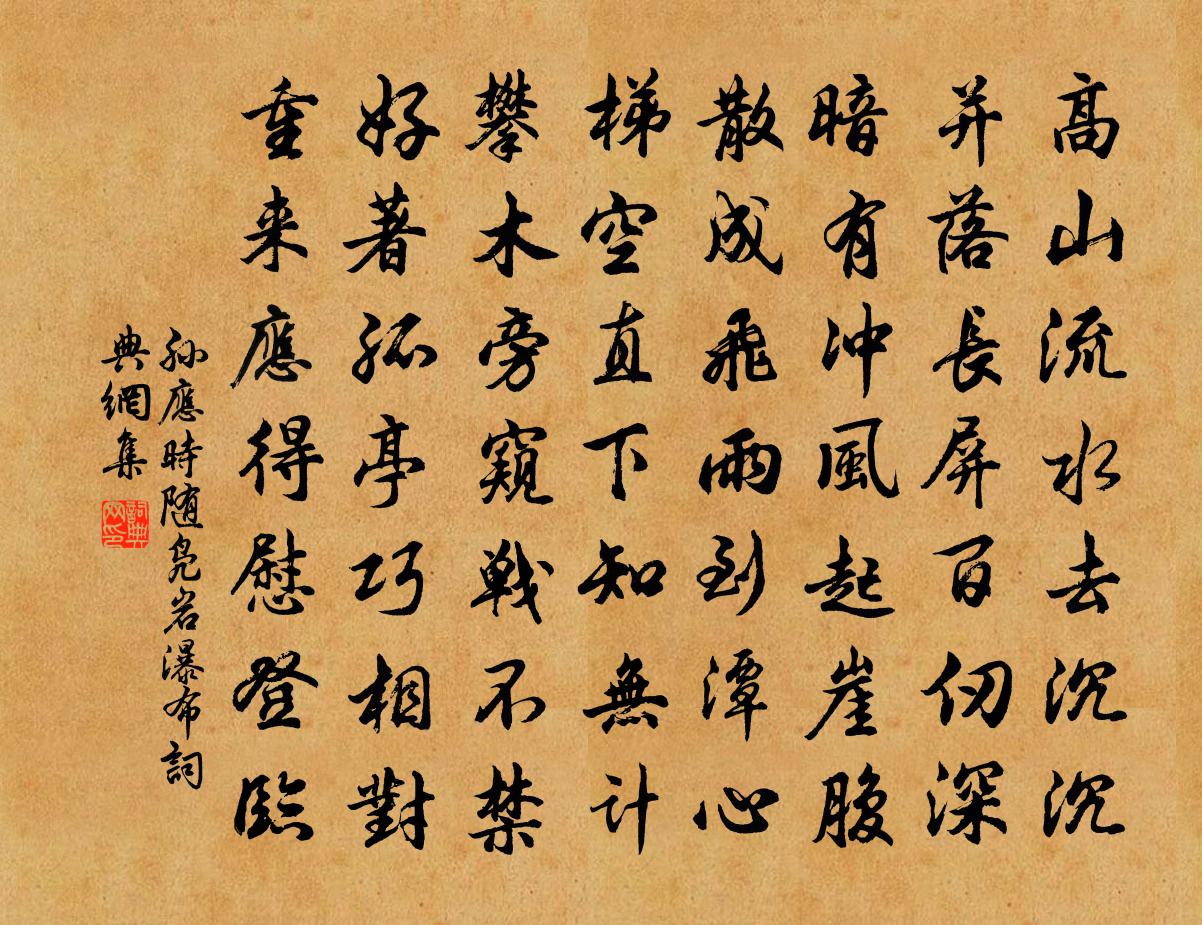 高山流水去沉沉
并落長屏百仞深
暗有沖風起崖腹
散成飛雨到潭心
梯空直下知無計
攀木旁窺戰不禁
好著孤亭巧相對
重来應得慰登臨
孫應時随凫岩瀑布詞
典網集
詞典
网印